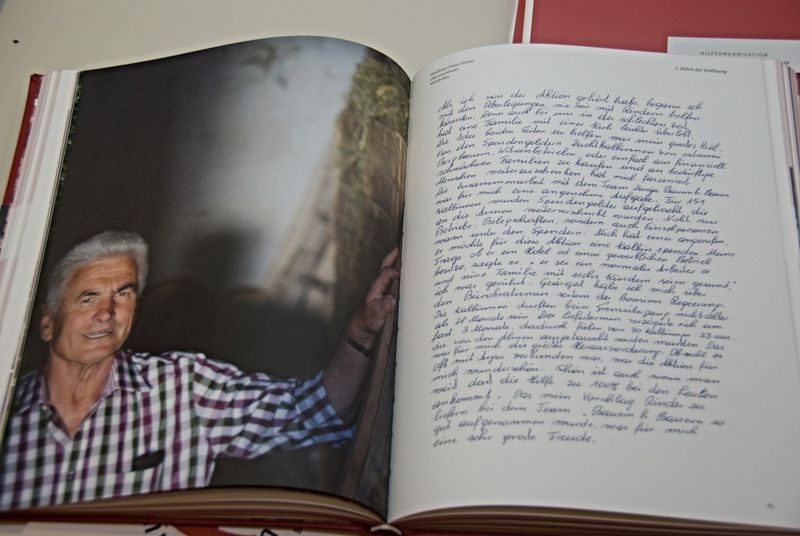 HILFSORGANISATION
7. Milch der Hoffnung
Als ich von der Aktion gehört habe, begann ich
mit den Überlegungen, wie wir mit Rindern helfen
können. Denn auch bei uns in der schlechten Zeit
hat eine Familie mit einer Kuh leichter überlebt.
Die Idee beiden Seiten zu helfen war mein großes Ziel.
Von den Spendengeldern Zuchtkalbinnen von extremen
Bergbauern, Witwenbetrieben oder einfach aus finanziell
schwachen Familien zu kaufen und an bedürftige
Menschen weiterzuschenken, hat mich fasziniert.
Die Zusammenarbeit mit dem Team Bauern h. Bauern
war für mich eine angenehme Aufgabe. Für 151
Kalbinnen wurden Spendengelder aufgebracht die
an die Armen weiterverschenkt wurden. Nicht nur
Betriebe, Belegschaften, sondern auch Einzelpersonen
waren unter den Spendern. Mich hat einer angerufen,
er möchte für diese Aktion eine Kalbin spenden. Meine
Frage ob er ein Hotel od. einen gewerblichen Betrieb
besitze sagte er, er sei ein normaler Arbeiter er
und seine Familie mit sechs Kindern seien gesund,"
ich war gerührt. Geärgert habe ich mich über
den Bürokratismus seitens der Bosnien Regierung.
Die Kalbinnen durften beim Grenzübergang nicht älter
als 28 Monate sein. Der Liefertermin verzögerte sich um
fast 3 Monate, dadurch fielen von 30 Kalbinnen 23 aus
die von den jüngeren ausgetauscht werden mussten. Das
war für mich die große Herausforderung. Obwohl es
oft mit Ärger verbunden war, war die Aktion für
mich wunderschön. Schön ist auch wenn man
weiß, dass die Hilfe zu 100% bei den Leuten
ankommt. Das mein Vorschlag Rinder zu
liefern bei dem Team „Bauern h. Bauern so
gut aufgenommen wurde, war für mich
eine sehr große Freude.